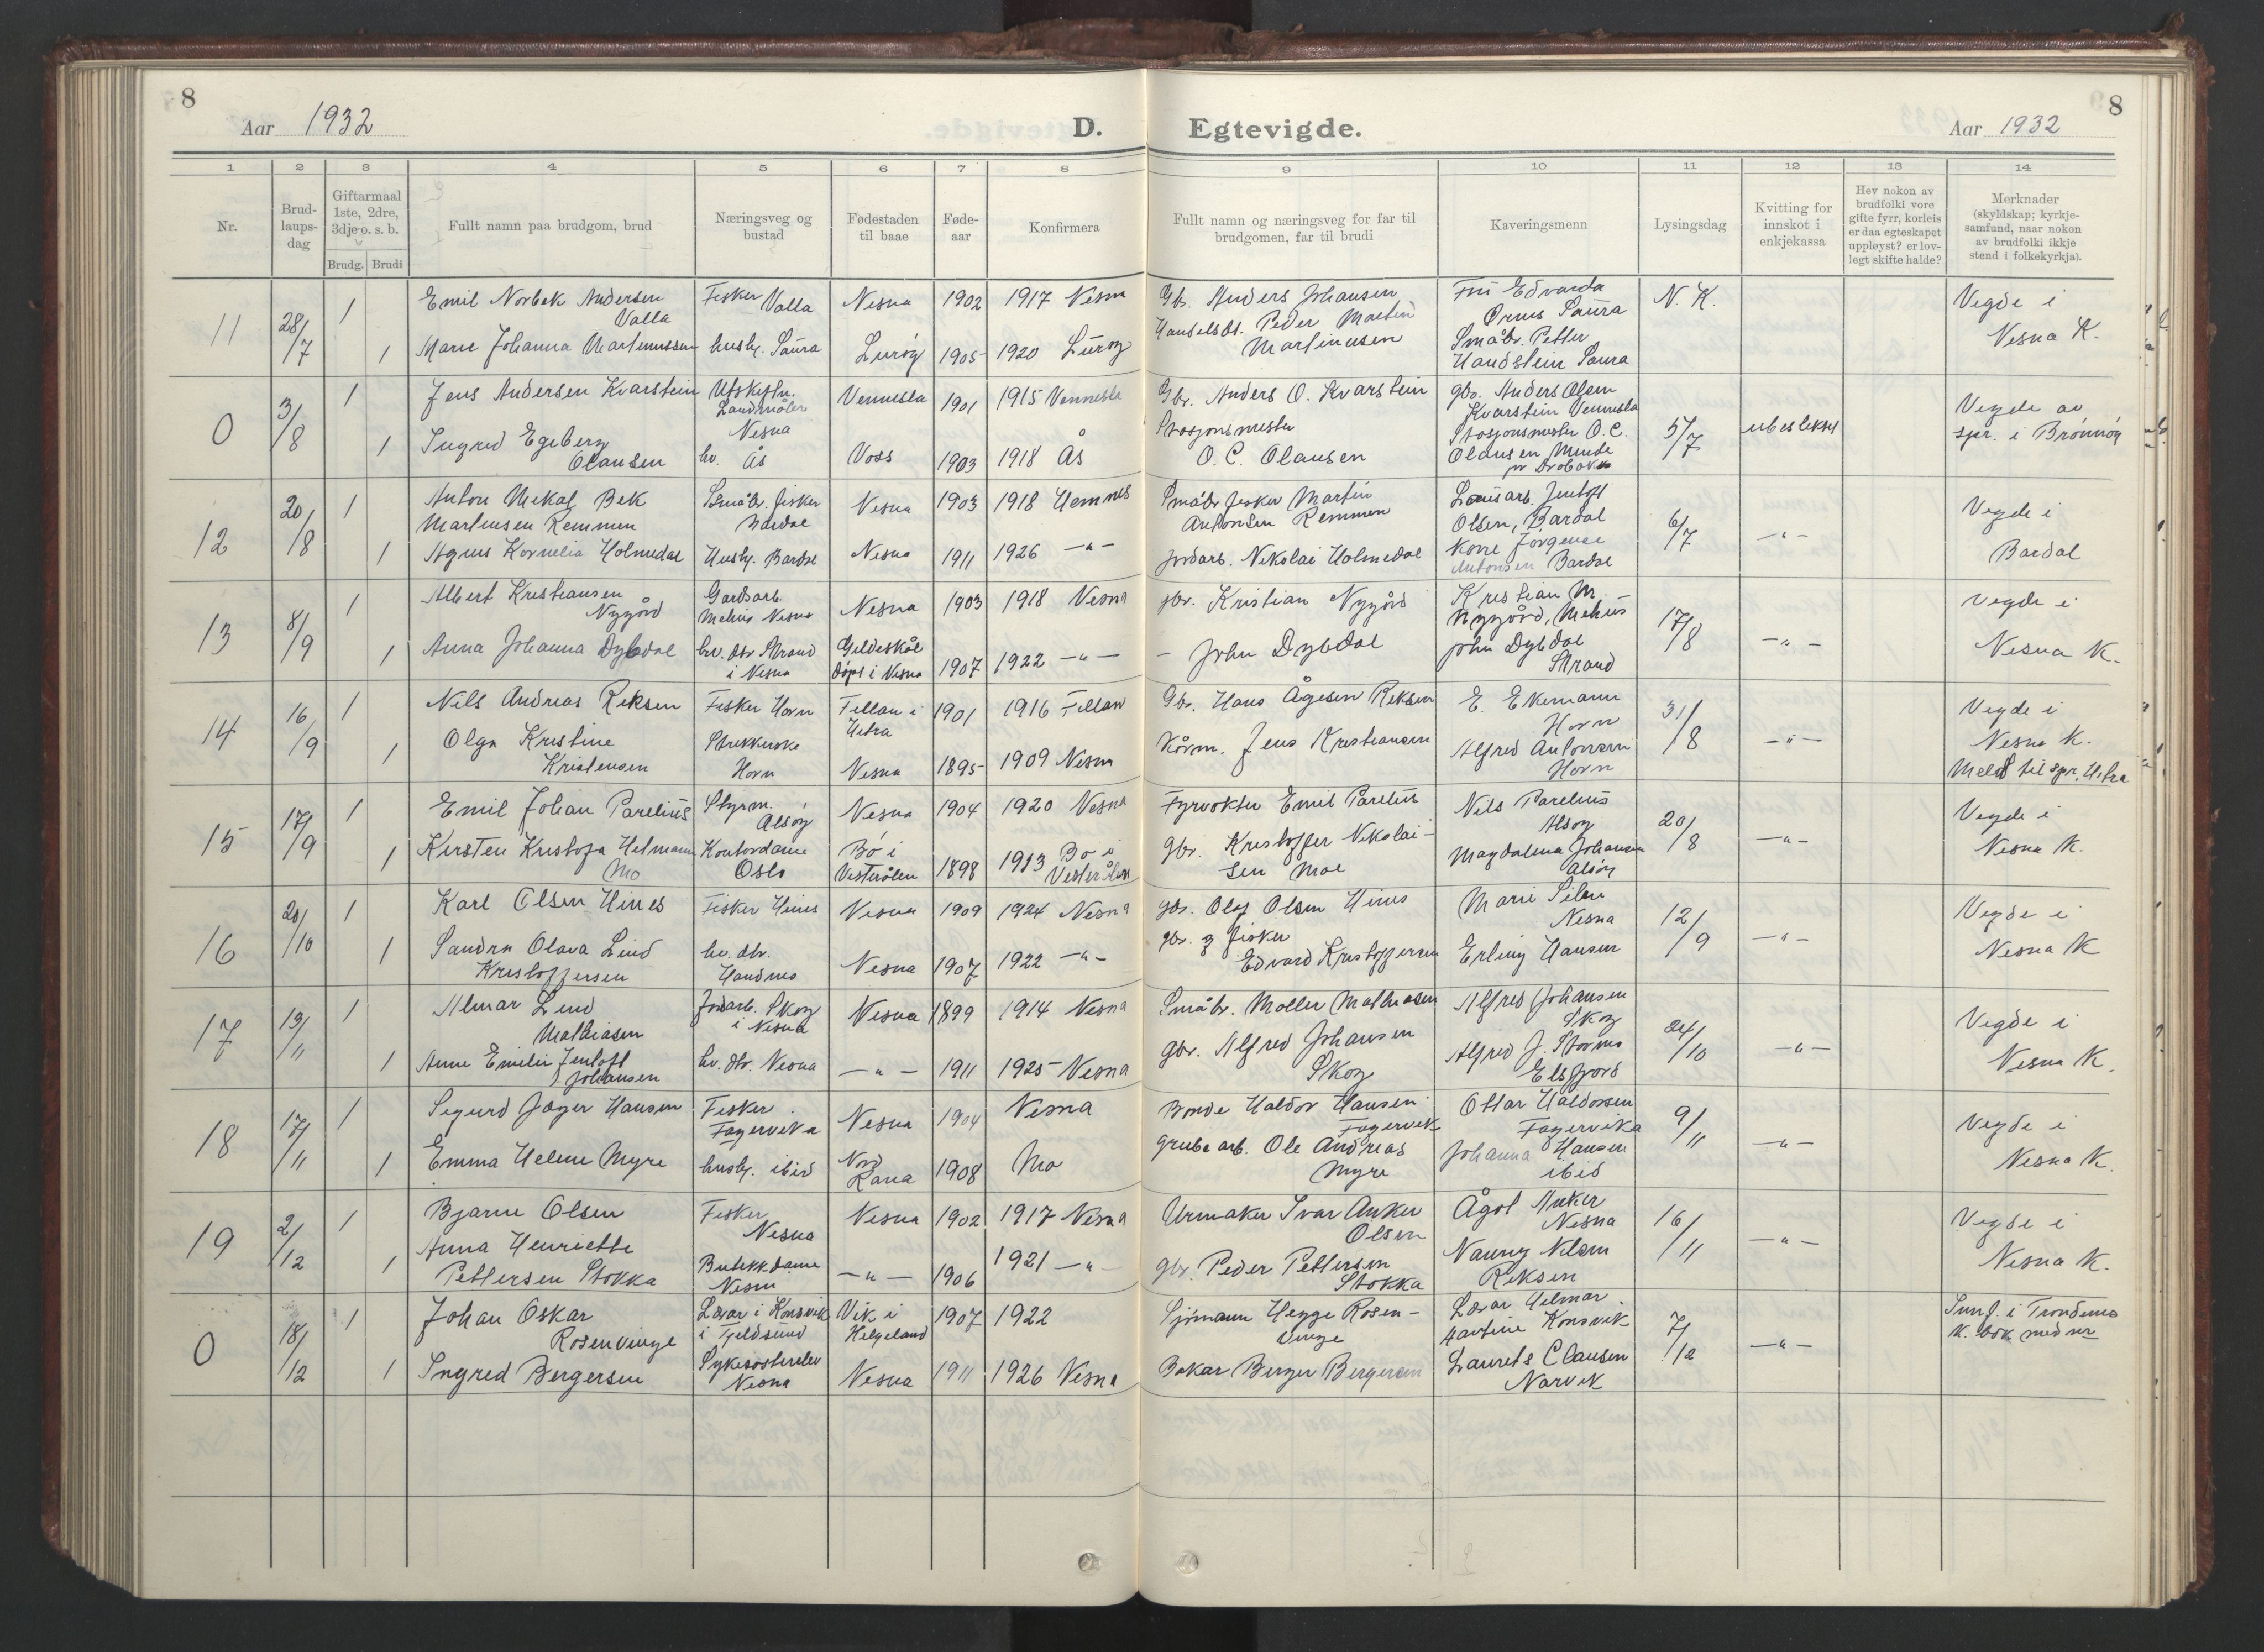 8
Aar 1932
D.
Egtevigde.
Aar 1932
8
1 2 3 4 5 6 7 8 9 10 11 12 13 14
Nr.
Brud-
laups-
dag
Giftarmaal
1ste, 2dre,
3dje o. s. b.
Brudg. Brudi
Fullt namn paa brudgom, brud
Næringsveg og
bustad
Fødestaden
til baae
Føde-
aar
Konfirmera
Fullt namn og næringsveg for far til
brudgomen, far til brudi
Kaveringsmenn
Lysingsdag
Kvitting for
innskot i
enkjekassa
Hev nokon av
brudfolki vore
gifte fyrr, korleis
er daa egteskapet
uppløyst? er lov-
legt skifte halde?
Merknader
(skyldskap; kyrkje-
samfund, naar nokon
av brudfolki ikkje
stend i folkekyrkja).
11
28/7
1
Emil Norbek Andersen
Valla
Fisker Valla
Nesna
1902
1917 Nesna
Gbr. Anders Johansen
Fru Edvarda
Ørnes Saura
N. K.
Vegde i
Nesna K.
1
Marie Johanna Martinussen
hush. Saura
Lurøy
1905
1920 Lurøy
Handelsbt. Peder Martin
Martinusen
Småbr. Petter
Handstein Saura
0
3/8
1
Jens Andersen Kvarstein
Utskiftn.
Landmåler
Nesna
Vennesla
1901
1915 Vennesla
Gbr. Anders O. Kvarstein
gbr. Anders Olsen
Kvarstein Vennesla
5/7
Vegde av
spr. i Brønnøy
1
Ingrid Egeberg
Olausen
hv. Ås
Voss
1903
1918 Ås
Stasjonsmester
O. C. Olausen
Stasjonsmester O. C.
Olausen
pr Drøbak
12
20/8
1
Anton Mekal Bek
Martinsen Remmen
Småbr. fisker
Bardal
Nesna
1903
1918 Hemnes
Småbr fisker Martin
Antonsen Remmen
Jentoft
Olsen, Bardal
6/7
-"-
Vegde i
Bardal
1
Agnes Kornelia Holmedal
Hush. Bardal
Nesna
1911
1926 -"-
jordarb. Nikolai Holmedal
Antonsen Bardal
13
8/9
1
Albert Kristiansen
Nygård
Gardsarb.
Mehus Nesna
Nesna
1903
1918 Nesna
gbr. Kristian Nygård
Kristian M.
Nygård, Mehus
17/8
-"-
Vegde i
Nesna K.
1
Anna Johanna Dybdal
hv. dtr Strand
i Nesna
Gildeskål
døpt i Nesna
1907
1922 -"-
- John Dybdal
John Dybdal
Strand
14
16/9
1
Nils Andreas Reksen
Fisker Horn
Fillan i
Hitra
1901
1916 Fillan
Gbr. Hans Ågesen Reksen
E. Ekemann
Horn
31/8
-"-
Vegde i
Nesna K.
Meldt til spr. Hitra
1
Olga Kristine
Kristensen
Strikkerske
Horn
Nesna
1895
1909 Nesna
Kårm. Jens Kristiansen
Alfred Antonsen
Horn
15
17/9
1
Emil Johan Parelius
Styrm.
Alsøy
Nesna
1904
1920 Nesna
Fyrvokter Emil Parelius
Nils Parelius
Alsøy
20/8
-"-
Vegde i
Nesna K.
1
Kirsten Kristofa Helmann
Mo
Kontordame
Oslo
Bø i
Vesterålen
1898
1913 Bø i
Vesterålen
gbr. Kristoffer Nikolai-
sen Moe
Magdalena Johansen
Alsøy
16
20/10
1
Karl Olsen Hines
Fisker Hines
Nesna
1909
1924 Nesna
gbr. Olaf Olsen Hines
Marie Silen
Nesna
12/9
-"-
Vegde i
Nesna K
1
Sandra Olava Lind
Kristoffersen
hv. dtr.
Handnes
Nesna
1907
1922 -"-
gbr. g fisker
Edvard Kristoffersen
Erling Hansen
17
13/11
1
Almar Lind
Mathiasen
Jordarb. Skog
i Nesna
Nesna
1899
1914 Nesna
Småbr. Møller Mathiasen
Alfred Johansen
Skog
24/10
-"-
Vegde i
Nesna K.
1
Anne Emilie Jentoft
Johansen
hv. dtr. Nesna
-"-
1911
1925 Nesna
Gbr. Alfred Johansen
Skog
Alfred J. Stornes
Elsfjord
18
17/11
1
Sigurd Jæger Hansen
Fisker
Fagervika
Nesna
1904
Nesna
Bonde Haldor Hansen
Fagervik
Ottar Haldorsen
Fagervika
9/11
-"-
Vegde i
Nesna K.
1
Emma Helene Myre
hush. ibid
Nord
Rana
1908
Mo
Grubearb. Ole Andreas
Myre
Johanna Hansen
ibid
19
2/12
1
Bjarne Olsen
Fisker
Nesna
Nesna
1902
1917 Nesna
Urmaker Ivar Anker
Olsen
Ågot Anker
Nesna
16/11
-"-
Vegde i
Nesna K.
1
Anna Henriette
Pettersen Stokka
Butikkdame
Nesna
-"-
1906
1921 -"-
gbr. Peder Pettersen
Stokka
Nanny Nilsen
Reksen
0
18/12
1
Johan Oskar
Rosenvinge
Lærar i Konsvik
i Tjeldsund
Vik i
Helgeland
1907
1922
Sjømann Hegge Rosen-
vinge
Lærar Hilmar
Hartine Konsvik
7/12
-"-
Innf. i Trondenes
K. bok med nr
1
Ingrid Bergersen
Sykesøsterelev
Nesna
Nesna
1911
1926 Nesna
Bakar Berger Bergersen
Laurits Clausen
Narvik